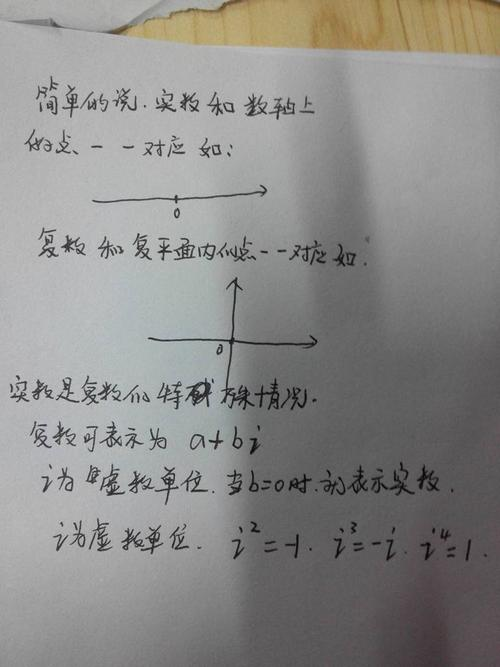 简单的说.实数和数轴上
的点一一对应如:
0
复数和复平面内的点一一对应如.
0
实数是复数的特殊情况.
复数可表示为 a+bi
i为虚数单位.当b=0时.则表示实数.
i为虚数单位. i²=-1. i³=-i. i⁴=1.